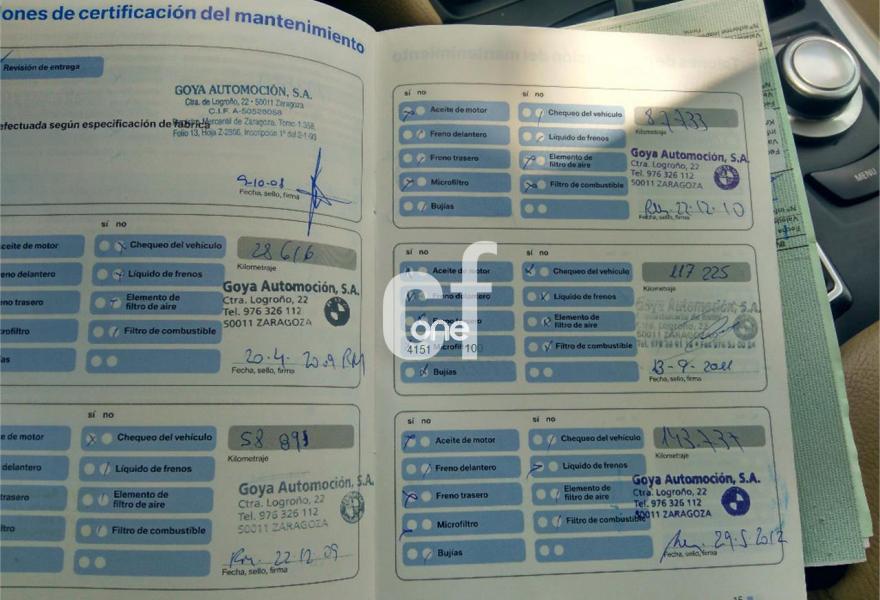 ones de certificación del mantenimiento
Revisión de entrega
GOYA AUTOMOCIÓN, S.A.
Ctra. de Logroño, 22 - 50011 Zaragoza
C.I.F. A-50528058
efectuada según especificación de fábrica
Mercantil de Zaragoza, Tomo 1.358,
Folio 13, Hoja Z-2806, Inscripción 1ª del 2-1-90
9-10-08
Fecha, sello, firma
sí no
aceite de motor
Chequeo del vehículo
28616
Kilometraje
eno delantero
Líquido de frenos
eno trasero
Elemento de
filtro de aire
Goya Automoción, S.A.
Ctra. Logroño, 22
Tel. 976 326 112
50011 ZARAGOZA
crofiltro
Filtro de combustible
as
20.4.2009 RM
Fecha, sello, firma
sí no
e de motor
Chequeo del vehículo
58 891
Kilometraje
delantero
Líquido de frenos
trasero
Elemento de
filtro de aire
Goya Automoción, S.A.
Ctra. Logroño, 22
Tel. 976 326 112
50011 ZARAGOZA
ltro
Filtro de combustible
22.12.09
Fecha, sello, firma
sí no
sí no
Aceite de motor
Chequeo del vehículo
87733
Kilometraje
Freno delantero
Líquido de frenos
Freno trasero
Elemento de
filtro de aire
Goya Automoción, S.A.
Ctra. Logroño, 22
Tel. 976 326 112
50011 ZARAGOZA
Microfiltro
Filtro de combustible
Bujías
22-12-10
Fecha, sello, firma
sí no
sí no
Aceite de motor
Chequeo del vehículo
117 225
Kilometraje
Freno delantero
Líquido de frenos
Freno trasero
Elemento de
filtro de aire
Microfiltro
Filtro de combustible
Bujías
13-9-2011
Fecha, sello, firma
cf
one
4151
100
sí no
sí no
Aceite de motor
Chequeo del vehículo
143737
Kilometraje
Freno delantero
Líquido de frenos
Freno trasero
Elemento de
filtro de aire
Goya Automoción, S.A.
Ctra. Logroño, 22
Tel. 976 326 112
50011 ZARAGOZA
Microfiltro
Filtro de combustible
Bujías
29-5 2012
Fecha, sello, firma
MENU